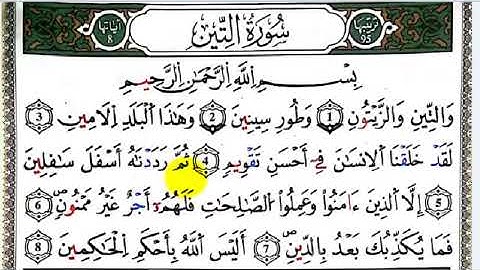 ترتيبها 95 سُورَةُ التِّينِ آياتها 8
بِسْمِ اللَّهِ الرَّحْمَٰنِ الرَّحِيمِ
وَالتِّينِ وَالزَّيْتُونِ 1 وَطُورِ سِينِينَ 2 وَهَٰذَا الْبَلَدِ الْأَمِينِ 3
لَقَدْ خَلَقْنَا الْإِنسَانَ فِي أَحْسَنِ تَقْوِيمٍ 4 ثُمَّ رَدَدْنَاهُ أَسْفَلَ سَافِلِينَ
5 إِلَّا الَّذِينَ ءَامَنُوا وَعَمِلُوا الصَّالِحَاتِ فَلَهُمْ أَجْرٌ غَيْرُ مَمْنُونٍ 6
فَمَا يُكَذِّبُكَ بَعْدُ بِالدِّينِ 7 أَلَيْسَ اللَّهُ بِأَحْكَمِ الْحَاكِمِينَ 8